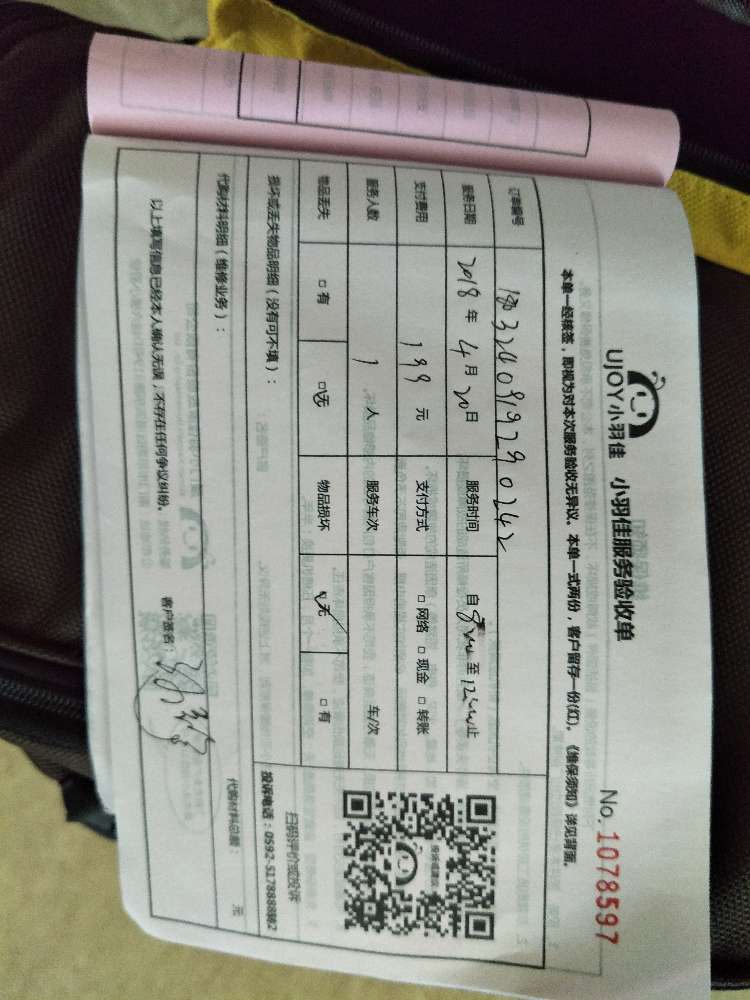 UJOY小羽佳 小羽佳服务验收单 No. 1078597
本单一经核签，即视为对本次服务验收无异议。本单一式两份，客户留存一份(红)。《维保须知》详见背面。
订单编号 180324091929 0242
服务日期 2018年4月20日 服务时间 自8:00至12:00止
支付费用 199元 支付方式 □网络 □现金 □转账
服务人数 1人 服务车次 车/次
物品丢失 □有 ☑无 物品损坏 ☑无 □有
损坏或丢失物品明细（没有可不填）：
投诉或建议
扫码评价或投诉
投诉电话：0592-5178888转802
代购材料明细（维修业务）： 代购材料总额： 元
以上填写信息已经本人确认无误，不存在任何争议纠纷。 客户签名：